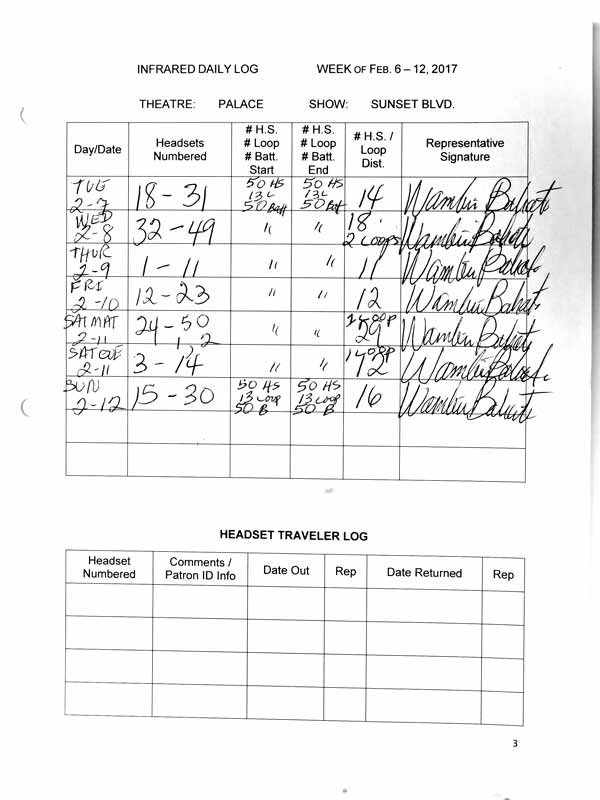 INFRARED DAILY LOG WEEK OF FEB. 6 – 12, 2017
THEATRE: PALACE SHOW: SUNSET BLVD.
Day/Date Headsets Numbered # H.S. # Loop # Batt. Start # H.S. # Loop # Batt. End # H.S. / Loop Dist. Representative Signature
TUE 2-7 18-31 50 HS 13 L 50 Batt 50 HS 13 L 50 Bat 14
WED 2-8 32-49 " " 18 2 Loops
THUR 2-9 1-11 " " 11
FRI 2-10 12-23 " " 12
SAT MAT 2-11 24-50 1, 2 " " 1 Loop 29
SAT EVE 2-11 3-14 " " 1 Loop 12
SUN 2-12 15-30 50 HS 13 Loop 50 B 50 HS 13 Loop 50 B 16
HEADSET TRAVELER LOG
Headset Numbered Comments / Patron ID Info Date Out Rep Date Returned Rep
3